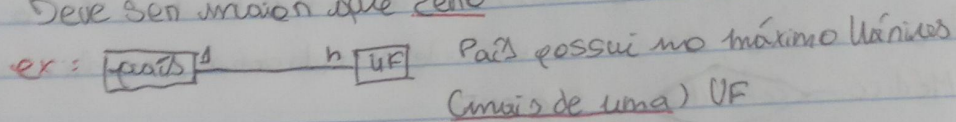 Deve ser maior que zero
ex: país 1 n UF País possui no máximo Vários
(mais de uma) UF